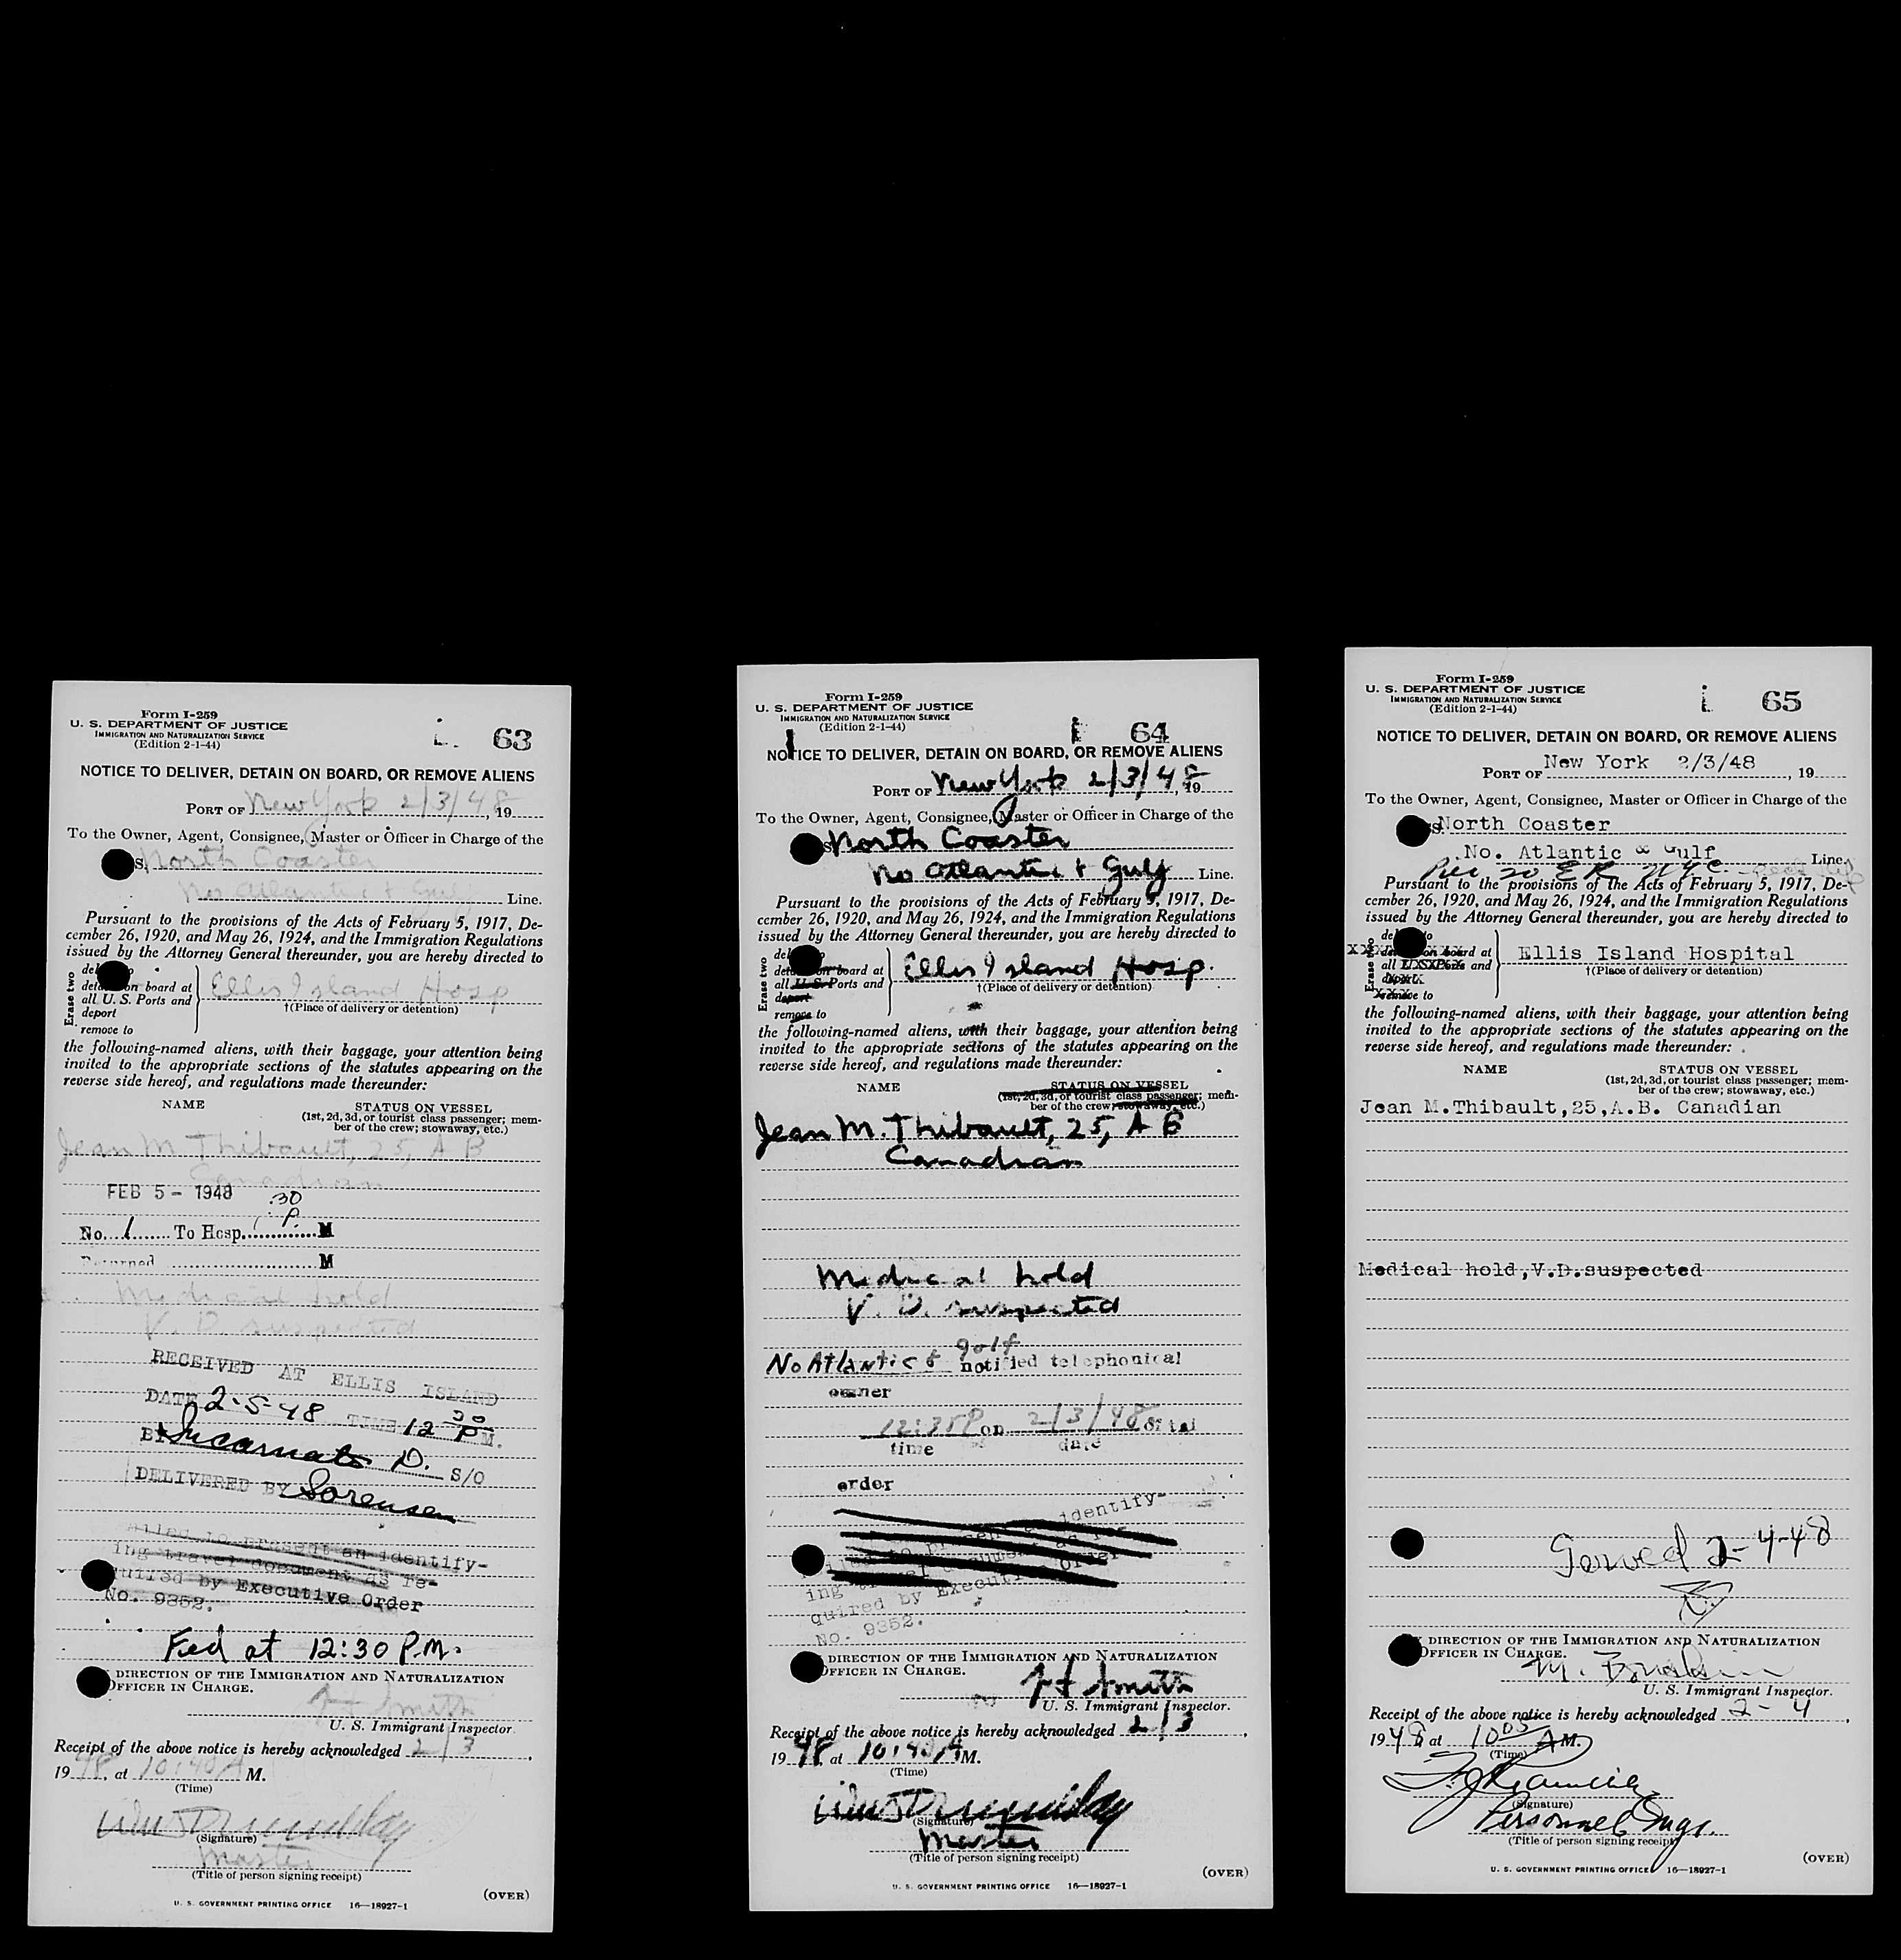 Form I-259
U. S. DEPARTMENT OF JUSTICE
IMMIGRATION AND NATURALIZATION SERVICE
(Edition 2-1-44)
63
NOTICE TO DELIVER, DETAIN ON BOARD, OR REMOVE ALIENS
PORT OF New York 2/3/48, 19
To the Owner, Agent, Consignee, Master or Officer in Charge of the
S. North Coaster
No Atlantic & Gulf Line.
Pursuant to the provisions of the Acts of February 5, 1917, De-
cember 26, 1920, and May 26, 1924, and the Immigration Regulations
issued by the Attorney General thereunder, you are hereby directed to
Erase two
del
detain on board at
all U. S. Ports and
deport
remove to
Ellis Island Hosp
†(Place of delivery or detention)
the following-named aliens, with their baggage, your attention being
invited to the appropriate sections of the statutes appearing on the
reverse side hereof, and regulations made thereunder:
NAME
STATUS ON VESSEL
(1st, 2d, 3d, or tourist class passenger; mem-
ber of the crew; stowaway, etc.)
Jean M Thibault, 25, A B
Canadian
FEB 5 - 1948
:30
No. 1 To Hosp. P. M
Returned M
Medical hold
V. D. suspected
RECEIVED AT ELLIS ISLAND
DATE 2-5-48 TIME 12 30 P M.
BY Incarnato D. S/O
DELIVERED BY Sorensen
ailed to present an identify-
ing travel document as re-
quired by Executive Order
No. 9352.
Fed at 12:30 P.M.
DIRECTION OF THE IMMIGRATION AND NATURALIZATION
OFFICER IN CHARGE.
Smith
U. S. Immigrant Inspector.
Receipt of the above notice is hereby acknowledged 2/3,
1948, at 10:40 A M.
(Time)
(Signature)
Master
(Title of person signing receipt)
(OVER)
U. S. GOVERNMENT PRINTING OFFICE 16—18927-1
Form I-259
U. S. DEPARTMENT OF JUSTICE
IMMIGRATION AND NATURALIZATION SERVICE
(Edition 2-1-44)
64
NOTICE TO DELIVER, DETAIN ON BOARD, OR REMOVE ALIENS
PORT OF New York 2/3/48, 19
To the Owner, Agent, Consignee, Master or Officer in Charge of the
S North Coaster
No Atlantic & Gulf Line.
Pursuant to the provisions of the Acts of February 5, 1917, De-
cember 26, 1920, and May 26, 1924, and the Immigration Regulations
issued by the Attorney General thereunder, you are hereby directed to
Erase two
del
detain on board at
all U. S. Ports and
deport
remove to
Ellis Island Hosp.
†(Place of delivery or detention)
the following-named aliens, with their baggage, your attention being
invited to the appropriate sections of the statutes appearing on the
reverse side hereof, and regulations made thereunder:
NAME
STATUS ON VESSEL
(1st, 2d, 3d, or tourist class passenger; mem-
ber of the crew; stowaway, etc.)
Jean M. Thibault, 25, A B
Canadian
Medical hold
V. D. suspected
No Atlantic & golf notified telephonical
owner
12:35 P on 2/3/48
time date
order
identify-
ing
quired by Executive Order
No. 9352.
DIRECTION OF THE IMMIGRATION AND NATURALIZATION
OFFICER IN CHARGE.
Smith
U. S. Immigrant Inspector.
Receipt of the above notice is hereby acknowledged 2/3,
1948, at 10:40 A M.
(Time)
(Signature)
Master
(Title of person signing receipt)
(OVER)
U. S. GOVERNMENT PRINTING OFFICE 16—18927-1
Form I-259
U. S. DEPARTMENT OF JUSTICE
IMMIGRATION AND NATURALIZATION SERVICE
(Edition 2-1-44)
65
NOTICE TO DELIVER, DETAIN ON BOARD, OR REMOVE ALIENS
PORT OF New York 2/3/48, 19
To the Owner, Agent, Consignee, Master or Officer in Charge of the
S. North Coaster
No. Atlantic & Gulf Line.
Pier 20 E R NYC
Pursuant to the provisions of the Acts of February 5, 1917, De-
cember 26, 1920, and May 26, 1924, and the Immigration Regulations
issued by the Attorney General thereunder, you are hereby directed to
Erase two
del
detain on board at
all U. S. Ports and
deport
remove to
Ellis Island Hospital
†(Place of delivery or detention)
the following-named aliens, with their baggage, your attention being
invited to the appropriate sections of the statutes appearing on the
reverse side hereof, and regulations made thereunder:
NAME
STATUS ON VESSEL
(1st, 2d, 3d, or tourist class passenger; mem-
ber of the crew; stowaway, etc.)
Jean M.Thibault,25,A.B. Canadian
Medical hold,V.D.suspected
Served 2-4-48
DIRECTION OF THE IMMIGRATION AND NATURALIZATION
OFFICER IN CHARGE.
U. S. Immigrant Inspector.
Receipt of the above notice is hereby acknowledged 2-4,
1948 at 10 05 A M.
(Time)
(Signature)
Personnel Mgr.
(Title of person signing receipt)
(OVER)
U. S. GOVERNMENT PRINTING OFFICE 16—18927-1